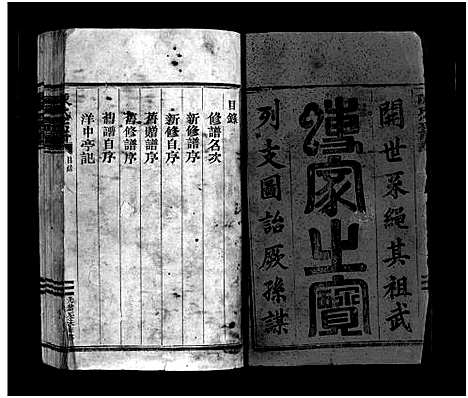 開世系繩其祖武
傳家之寶
列支圖詒厥孫謀
目錄
修譜名次
新修譜序
新修自序
舊贈譜序
舊修譜序
初譜自序
洋中亭記